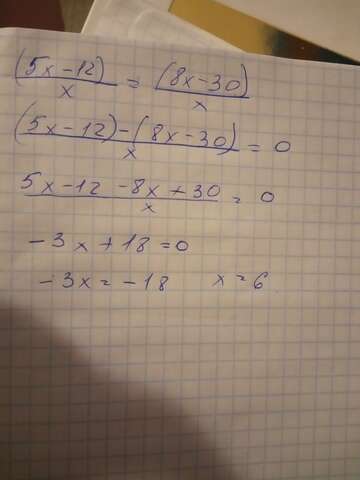 (5x-12)/x = (8x-30)/x
(5x-12)-(8x-30)/x = 0
5x-12-8x+30/x = 0
-3x+18=0
-3x=-18 x=6